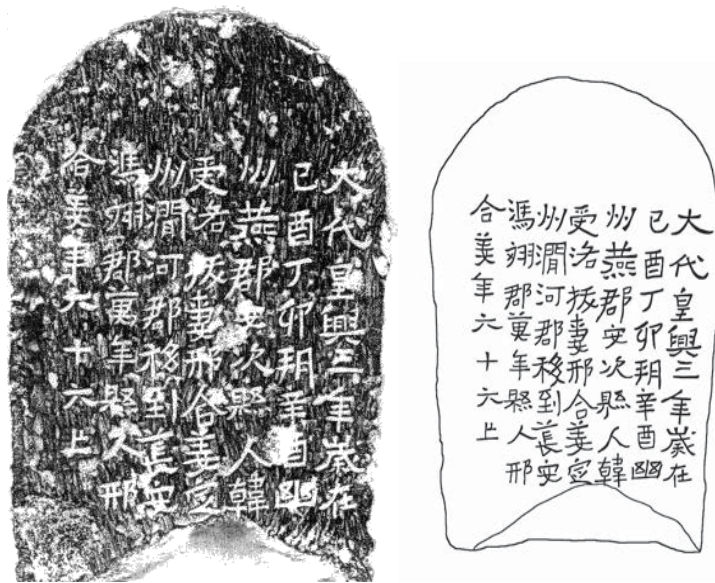 大代皇興三年歲在
己酉丁卯朔辛酉幽
州燕郡安次縣人韓
受洛拔妻邢合姜定
州澗河郡移到萇安
馮翊郡萬年縣人邢
合姜年六十六亡
大代皇興三年歲在
己酉丁卯朔辛酉幽
州燕郡安次縣人韓
受洛拔妻邢合姜定
州澗河郡移到萇安
馮翊郡萬年縣人邢
合姜年六十六亡